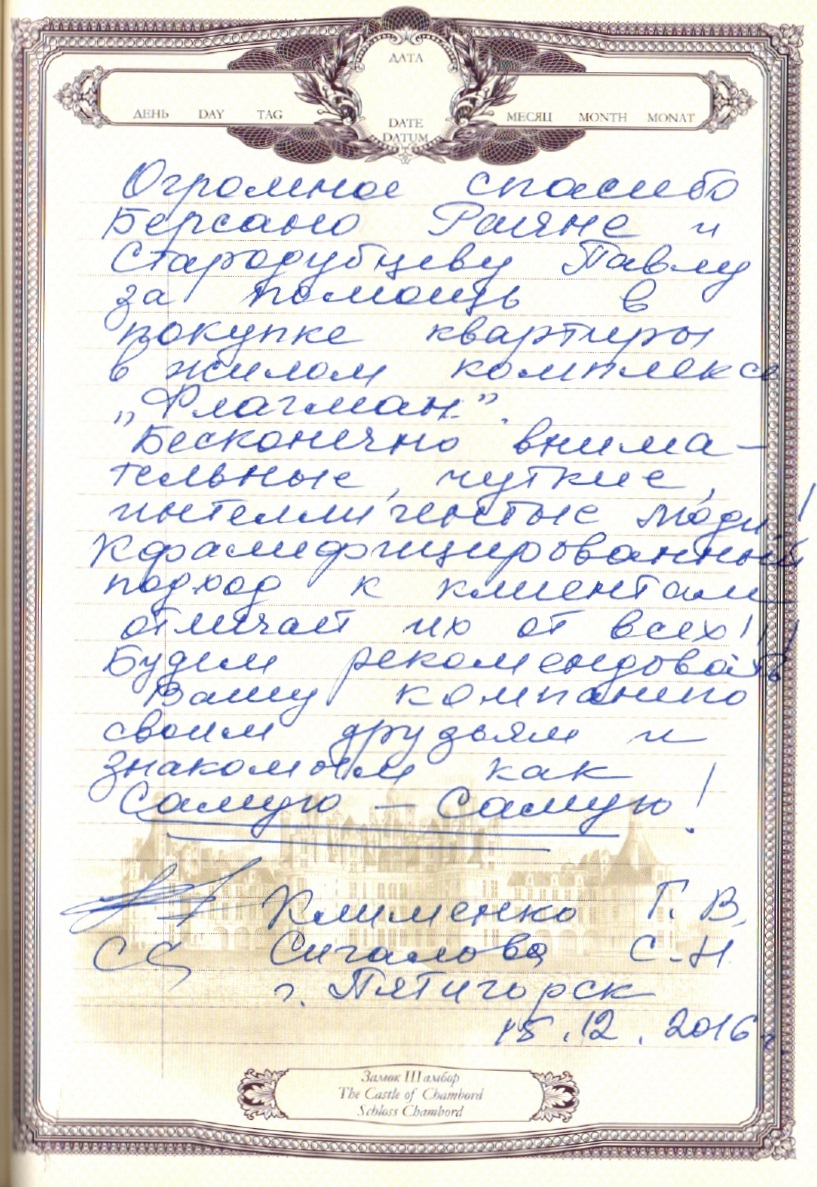 ДАТА
ДЕНЬ DAY TAG
DATE
DATUM
МЕСЯЦ MONTH MONAT
Огромное спасибо
Берсано Раяне и
Стародубцеву Павлу
за помощь в
покупке квартиры
в жилом комплексе
„Флагман".
Бесконечно внима-
тельные, чуткие,
интеллигентные люди!
подход к клиентам
отличает их от всех!!!
Будем рекомендовать
Вашу компанию
своим друзьям и
знакомым как
самую - самую!
Клименко Г. В.
Сигалова С.Н.
г. Пятигорск
15.12.2016г.
Замок Шамбор
The Castle of Chambord
Schloss Chambord